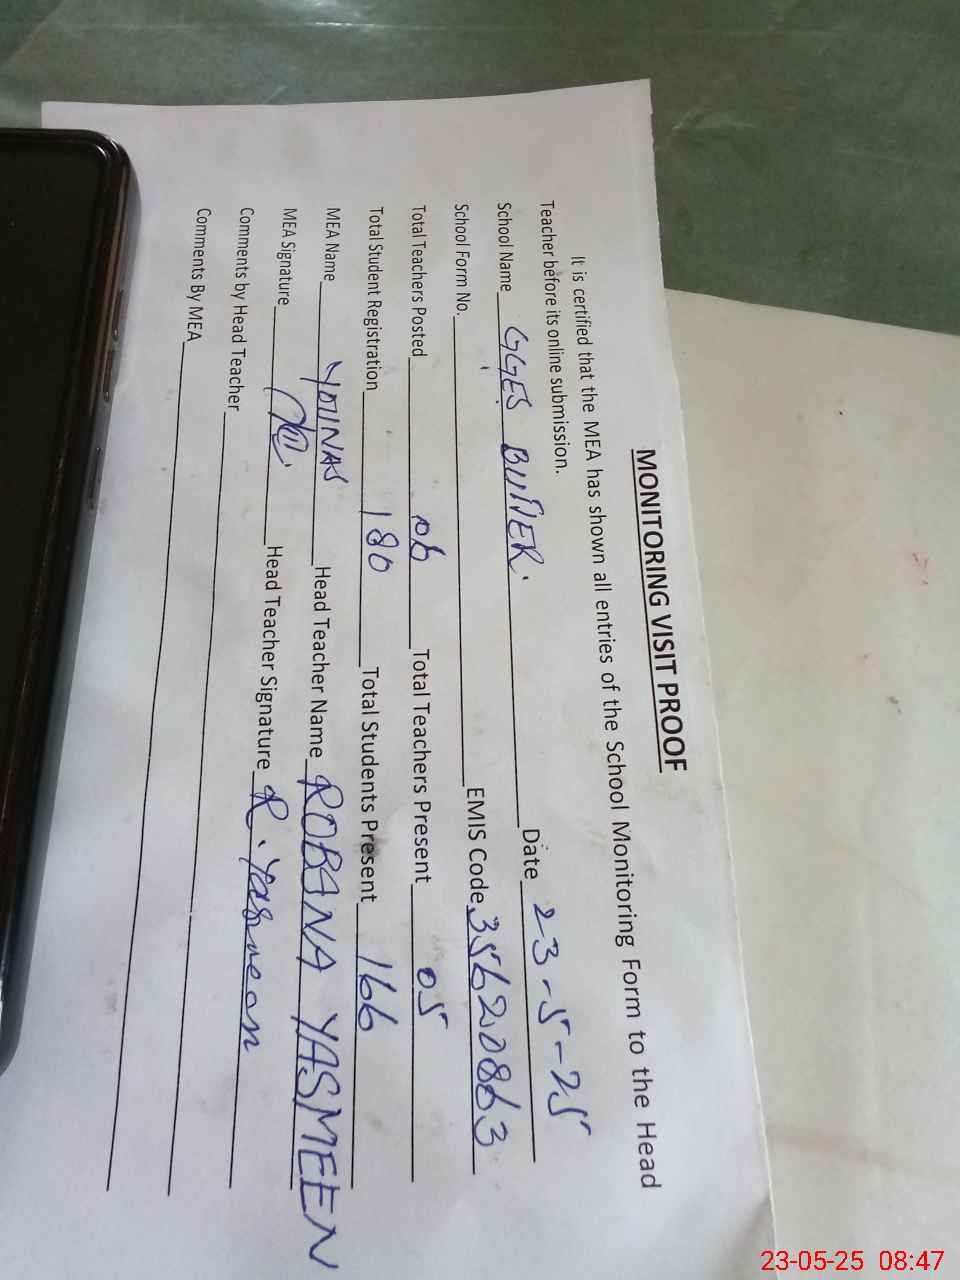 MONITORING VISIT PROOF
It is certified that the MEA has shown all entries of the School Monitoring Form to the Head
Teacher before its online submission.
School Name GGES Date 23-5-25
School Form No. EMIS Code 35620863
Total Teachers Posted 06 Total Teachers Present 05
Total Student Registration 180 Total Students Present 166
MEA Name YOUNAS Head Teacher Name ROBANA YASMEEN
MEA Signature Head Teacher Signature R. Yasmeen
Comments by Head Teacher
Comments By MEA
23-05-25 08:47